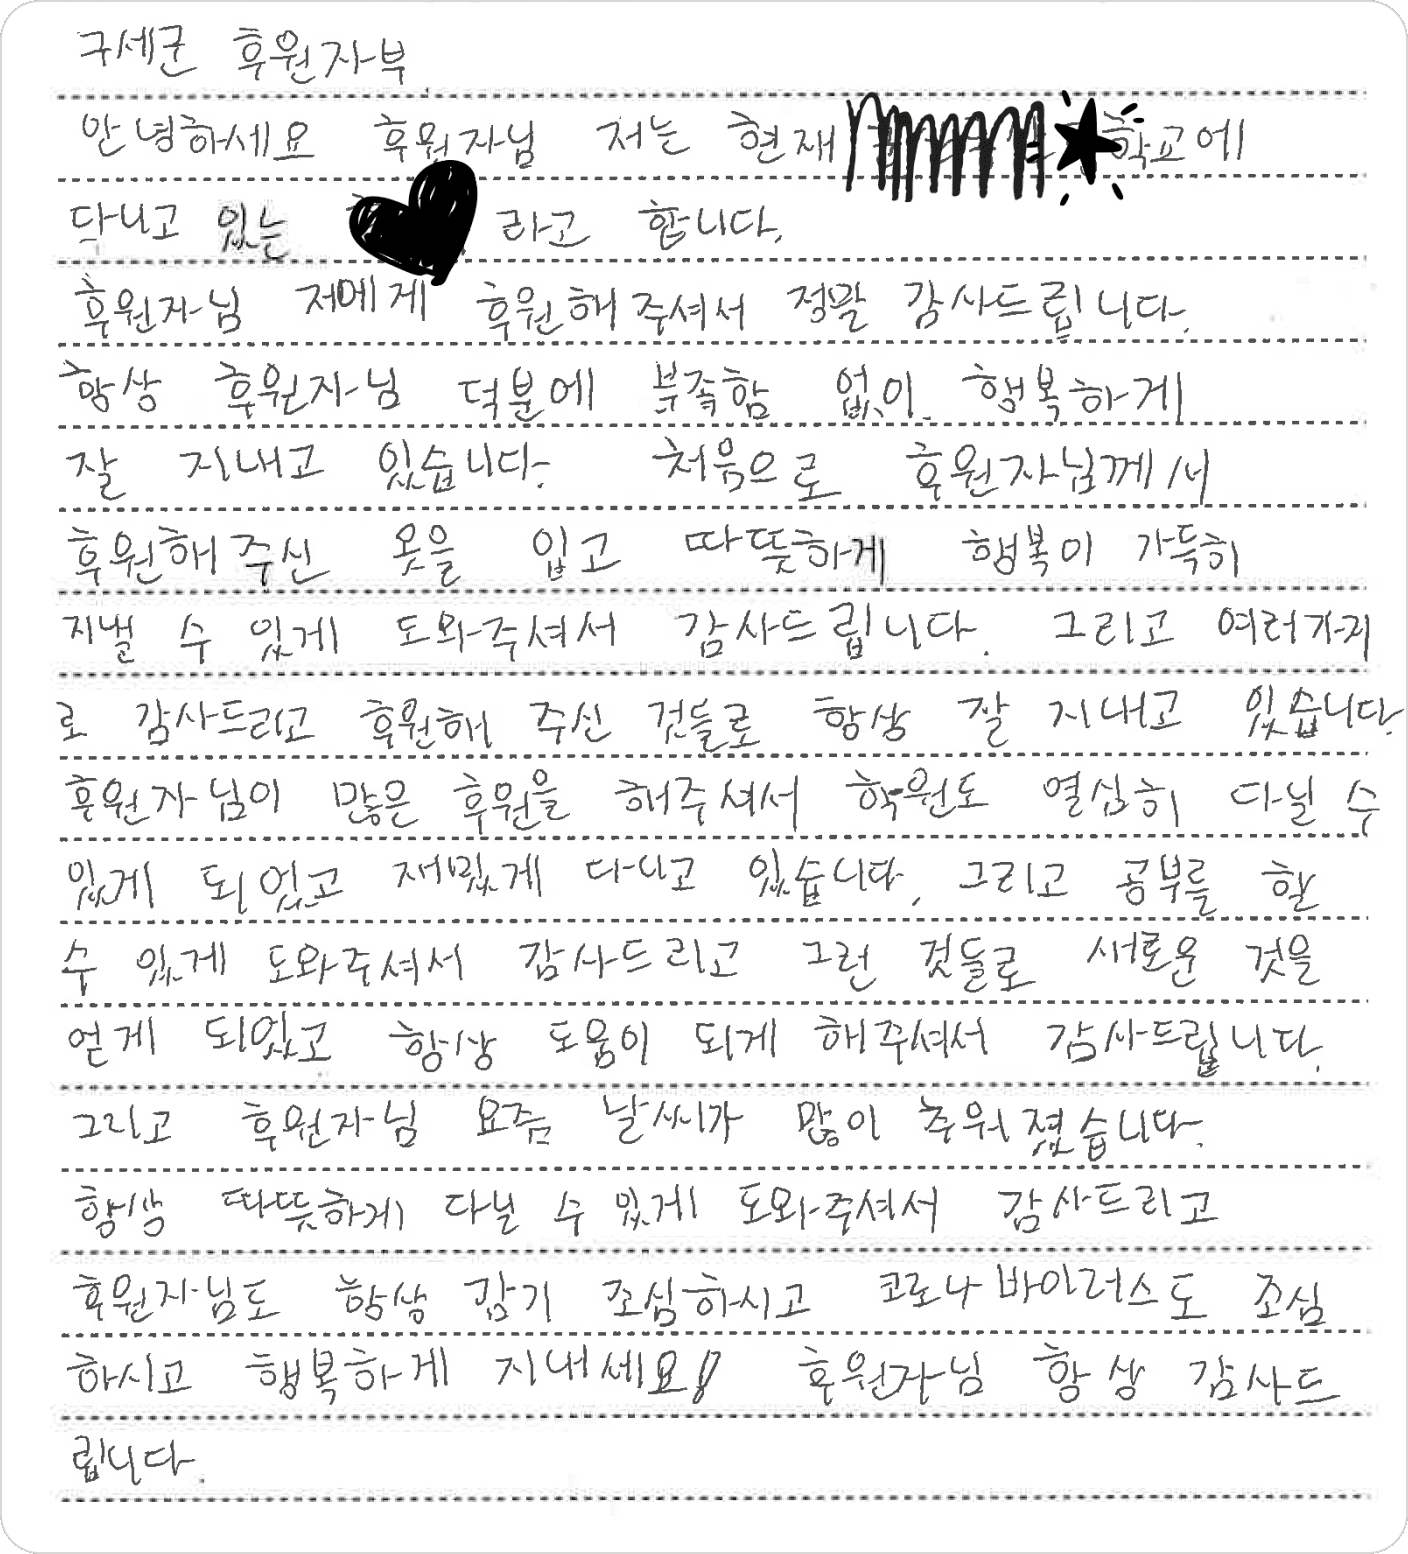 구세군 후원자부
안녕하세요 후원자님 저는 현재 학교에
다니고 있는 라고 합니다.
후원자님 저에게 후원해주셔서 정말 감사드립니다.
항상 후원자님 덕분에 부족함 없이 행복하게
잘 지내고 있습니다. 처음으로 후원자님께서
후원해주신 옷을 입고 따뜻하게 행복이 가득히
지낼 수 있게 도와주셔서 감사드립니다. 그리고 여러가지
로 감사드리고 후원해 주신 것들로 항상 잘 지내고 있습니다.
후원자님이 많은 후원을 해주셔서 학원도 열심히 다닐 수
있게 되었고 재밌게 다니고 있습니다. 그리고 공부를 할
수 있게 도와주셔서 감사드리고 그런 것들로 새로운 것을
얻게 되었고 항상 도움이 되게 해주셔서 감사드립니다.
그리고 후원자님 요즘 날씨가 많이 추워졌습니다.
항상 따뜻하게 다닐 수 있게 도와주셔서 감사드리고
후원자님도 항상 감기 조심하시고 코로나바이러스도 조심
하시고 행복하게 지내세요! 후원자님 항상 감사드
립니다.